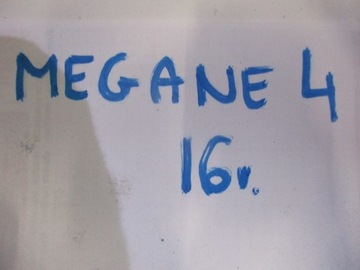 MEGANE 4
16r.